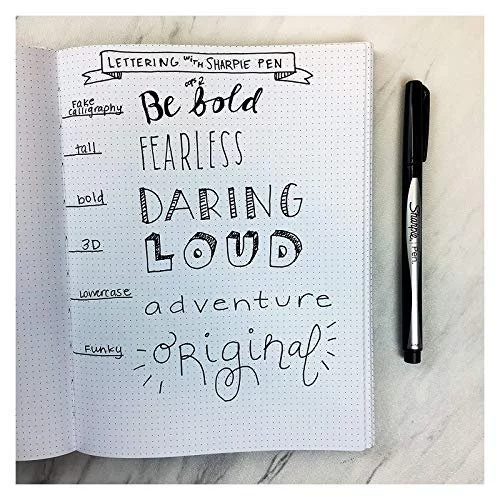 LETTERING WITH SHARPIE PEN
Fake
Calligraphy
Be bold
tall
FEARLESS
bold
DARING
3D
LOUD
Lowercase
adventure
Funky
ORiginal
Sharpie Pen